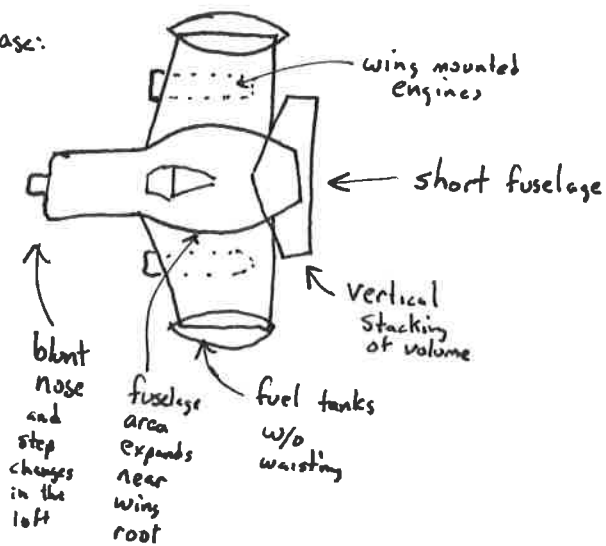 ase:
wing mounted
engines
short fuselage
vertical
stacking
of volume
blunt
nose
and
step
changes
in the
loft
fuselage
area
expands
near
wing
root
fuel tanks
w/o
waisting